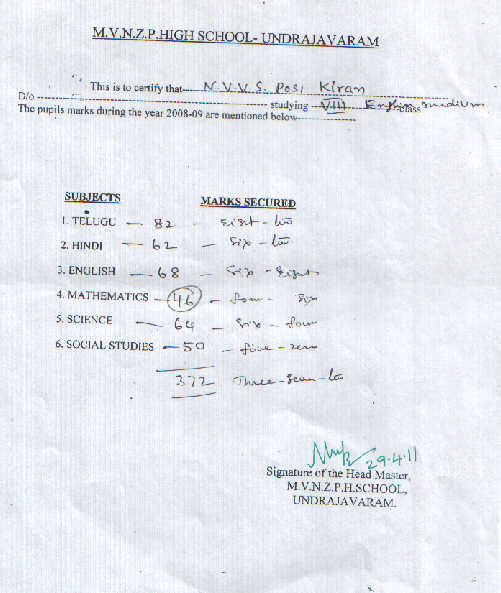 M.V.N.Z.P.HIGH SCHOOL- UNDRAJAVARAM
This is to certify that N.V.V.S. Posi Kiran
D/o studying VIII English medium class
The pupils marks during the year 2008-09 are mentioned below
SUBJECTS MARKS SECURED
1. TELUGU — 82 - Eight - two
2. HINDI — 62 - Six - two
3. ENGLISH — 68 - Six - Eight
4. MATHEMATICS - 46 - four - Six
5. SCIENCE — 64 - Six - four
6. SOCIAL STUDIES — 50 - five - zero
372 Three - Seven - two
29-4-11
Signature of the Head Master,
M.V.N.Z.P.H.SCHOOL,
UNDRAJAVARAM.